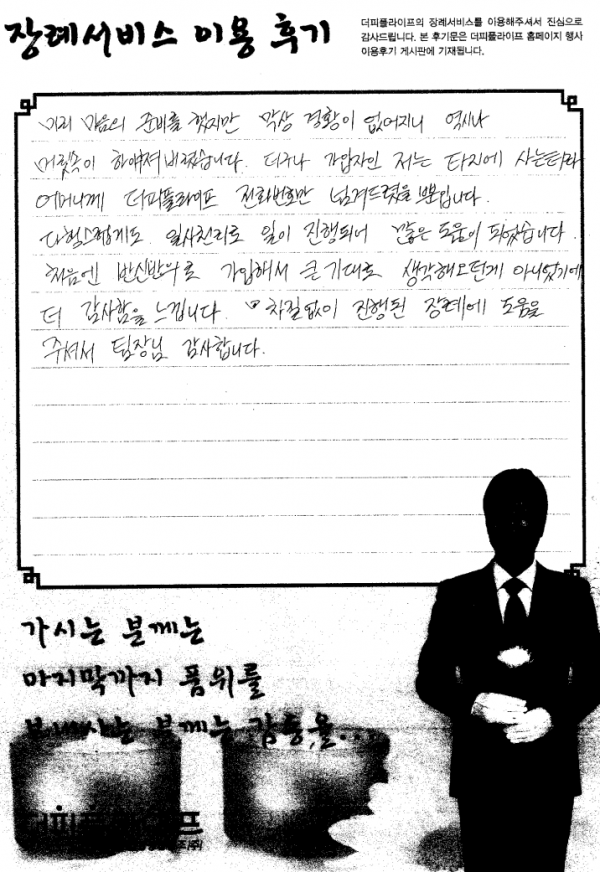 장례서비스 이용 후기
더피플라이프의 장례서비스를 이용해주셔서 진심으로
감사드립니다. 본 후기문은 더피플라이프 홈페이지 행사
이용후기 게시판에 기재됩니다.
미리 마음의 준비를 했지만 막상 경황이 없어지니 역시나
머릿속이 하얘져버렸습니다. 더구나 가입자인 저는 타지에 사는터라
어머니께 더피플라이프 전화번호만 넘겨드렸을 뿐입니다.
다행스럽게도 일사천리로 일이 진행되니 많은 도움이 되었습니다
처음엔 반신반의로 가입해서 큰 기대로 생각해오던게 아니었기에
더 감사함을 느낍니다. 차질없이 진행된 장례에 도움을
주셔서 팀장님 감사합니다.
가시는 분께는
마지막까지 품위를
보내시는 분께는 감동을...
더피플라이프